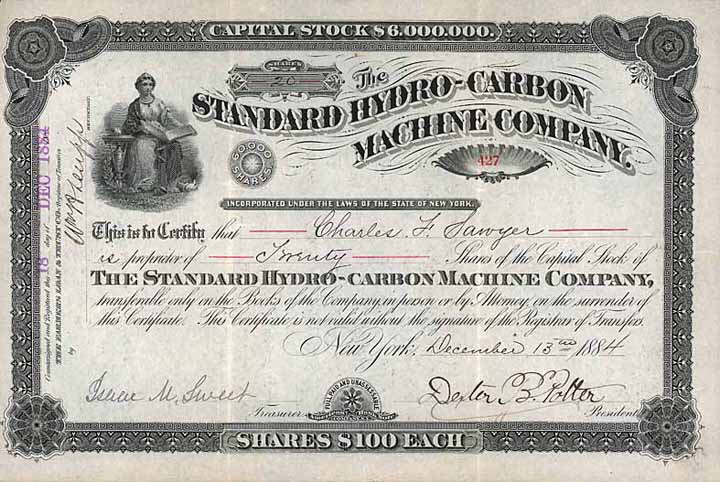 CAPITAL STOCK $6.000.000.
SHARES
20
The
STANDARD HYDRO-CARBON
MACHINE COMPANY.
60,000
SHARES
427
INCORPORATED UNDER THE LAWS OF THE STATE OF NEW YORK.
This is to Certify that Charles F. Sawyer
is proprietor of Twenty Shares of the Capital Stock of
THE STANDARD HYDRO-CARBON MACHINE COMPANY,
transferable only on the Books of the Company, in person or by Attorney, on the surrender of
this Certificate. This Certificate is not valid without the signature of the Registrar of Transfers.
New York, December 13th 1884
Isaac M. Sweet
Treasurer
FULL PAID AND UNASSESSABLE
Dexter B. Potter
President
SHARES $100 EACH
Countersigned and Registered the 18 day of DEC 1884
THE FARMERS LOAN & TRUST CO. Registrar of Transfers
by
SECRETARY